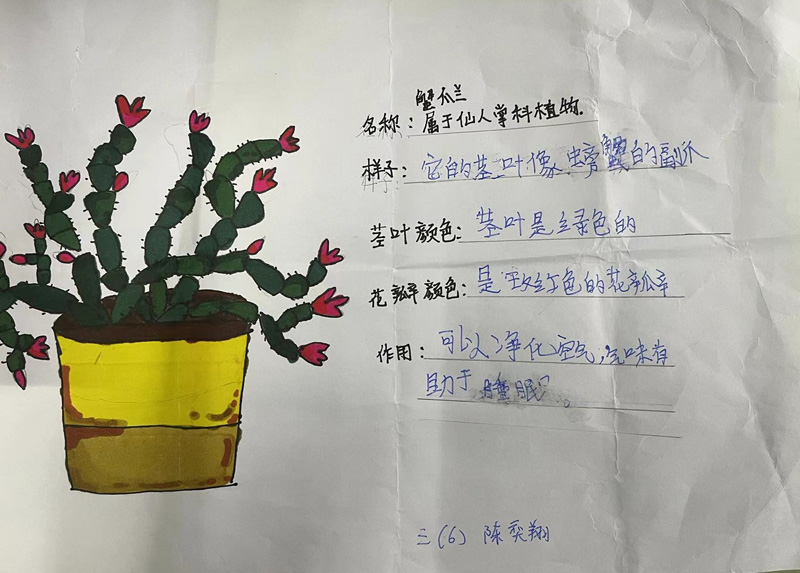 蟹爪兰
名称：属于仙人掌科植物.
样子：它的茎叶像螃蟹的副爪
茎叶颜色：茎叶是绿色的
花瓣颜色：是玫红色的花瓣
作用：可以净化空气,气味有
助于睡眠。
三(6) 陈奕翔